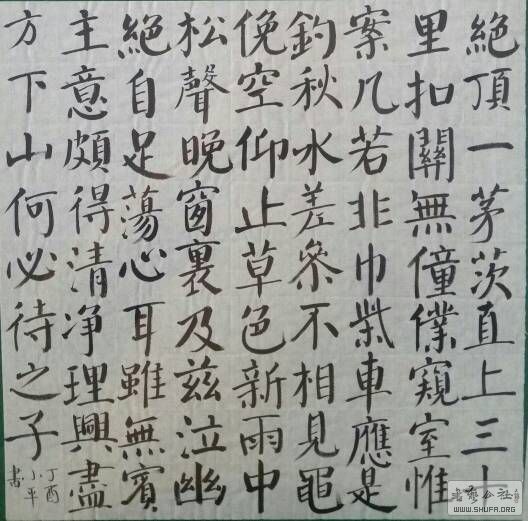 絕頂一茅茨直上三十
里扣關無僮僕窺室惟
案几若非巾柴車應是
釣秋水差參不相見黽
俛空仰止草色新雨中
松聲晚窗裏及茲泣幽
絕自足蕩心耳雖無賓
主意頗得清净理興盡
方下山何必待之子
丁酉
小平
書
書藝公社
WWW.SHUFA.ORG